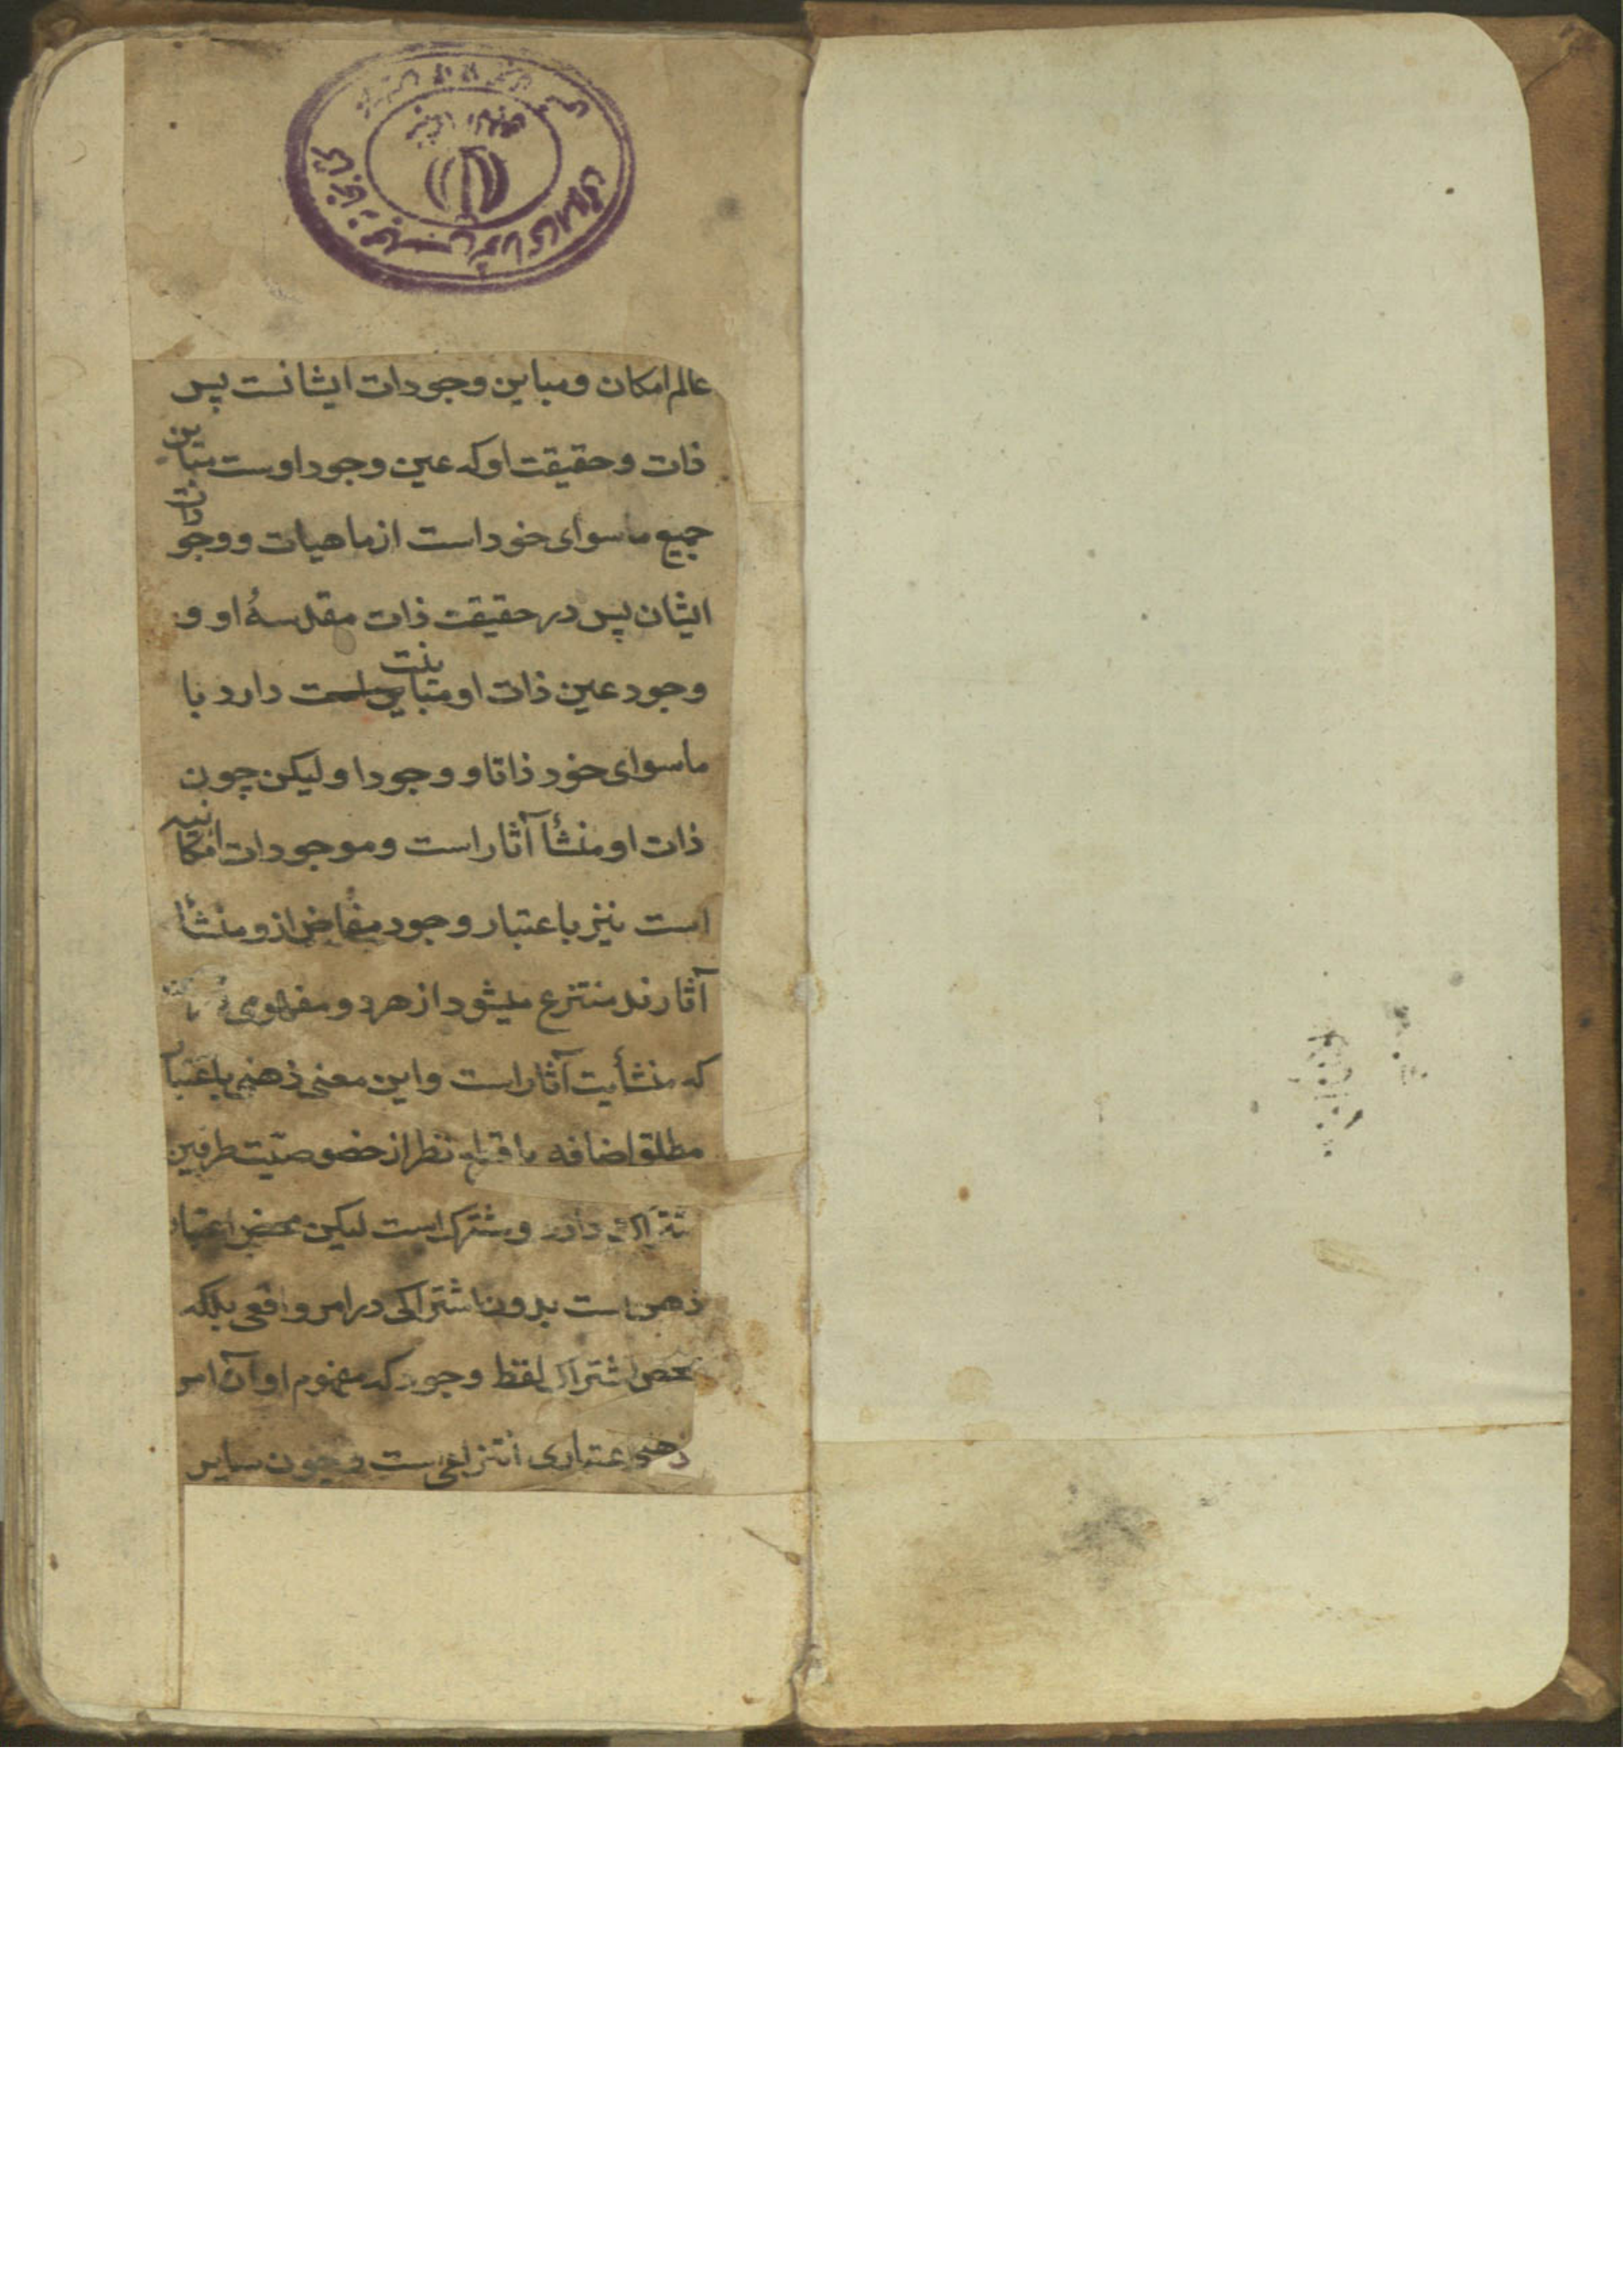 عالم امکان و مباین وجودات ایشانست پس
ذات و حقیقت او که عین وجود اوست متباین
جمیع ماسوای خود است از ماهیات و وجودات
ایشان پس در حقیقت ذات مقدسهٔ او و
وجود عین ذات او متباینت دارد با
ماسوای خود ذاتا و وجودا و لیکن چون
ذات او منشأ آثار است و موجودات امکانیه
است نیز باعتبار وجود مفاض ازو منشأ
آثارند منتزع میشود از هر دو مفهومی
که منشأیت آثار است و این معنی ذهنی باعتبار
مطلق اضافه با قطع نظر از خصوصیّت طرفین
اشتراک دارد و مشترک است لیکن محض اعتبار
ذهن است بدون اشتراکی در امر واقعی بلکه
محض اشتراک لفظ وجود که مفهوم او آن امر
ذهنی اعتباری انتزاعی است و چون سایر